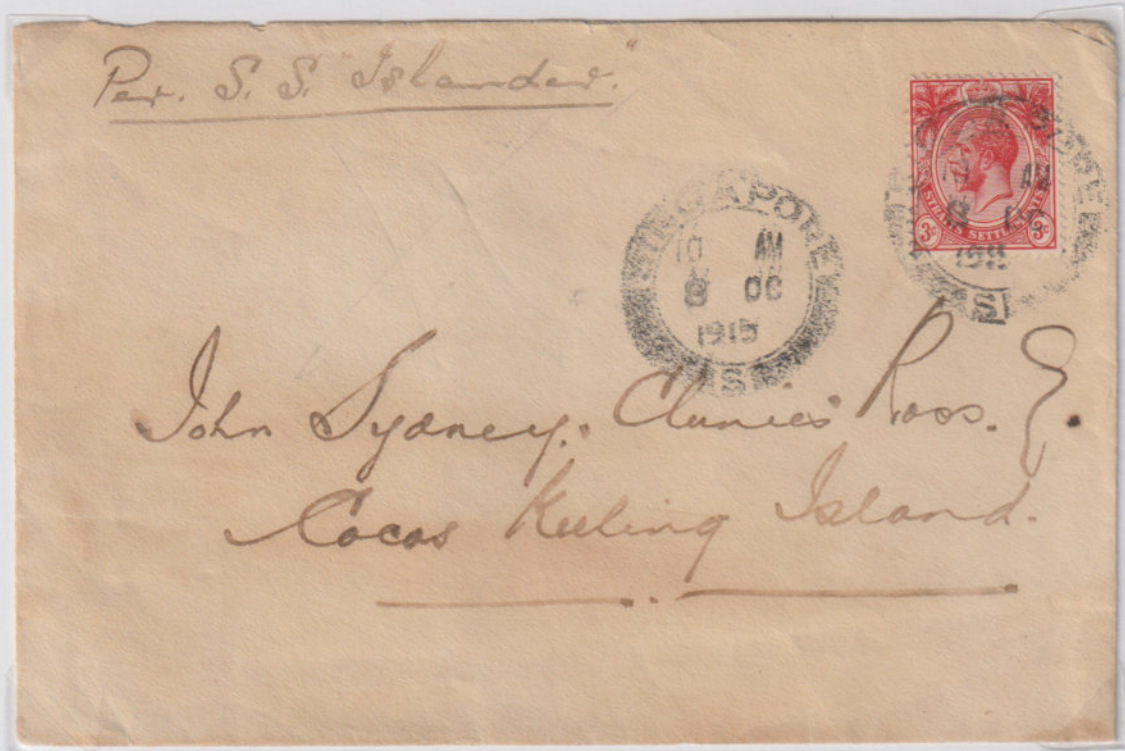 Per. S. S. "Islander."
STRAITS SETTLEMENTS
3c 3c
SINGAPORE
10 AM
8 OC
1915
S
AM
8 OC
191
S
John Sydney. Clunies Ross. E.
Cocos Keeling Island.